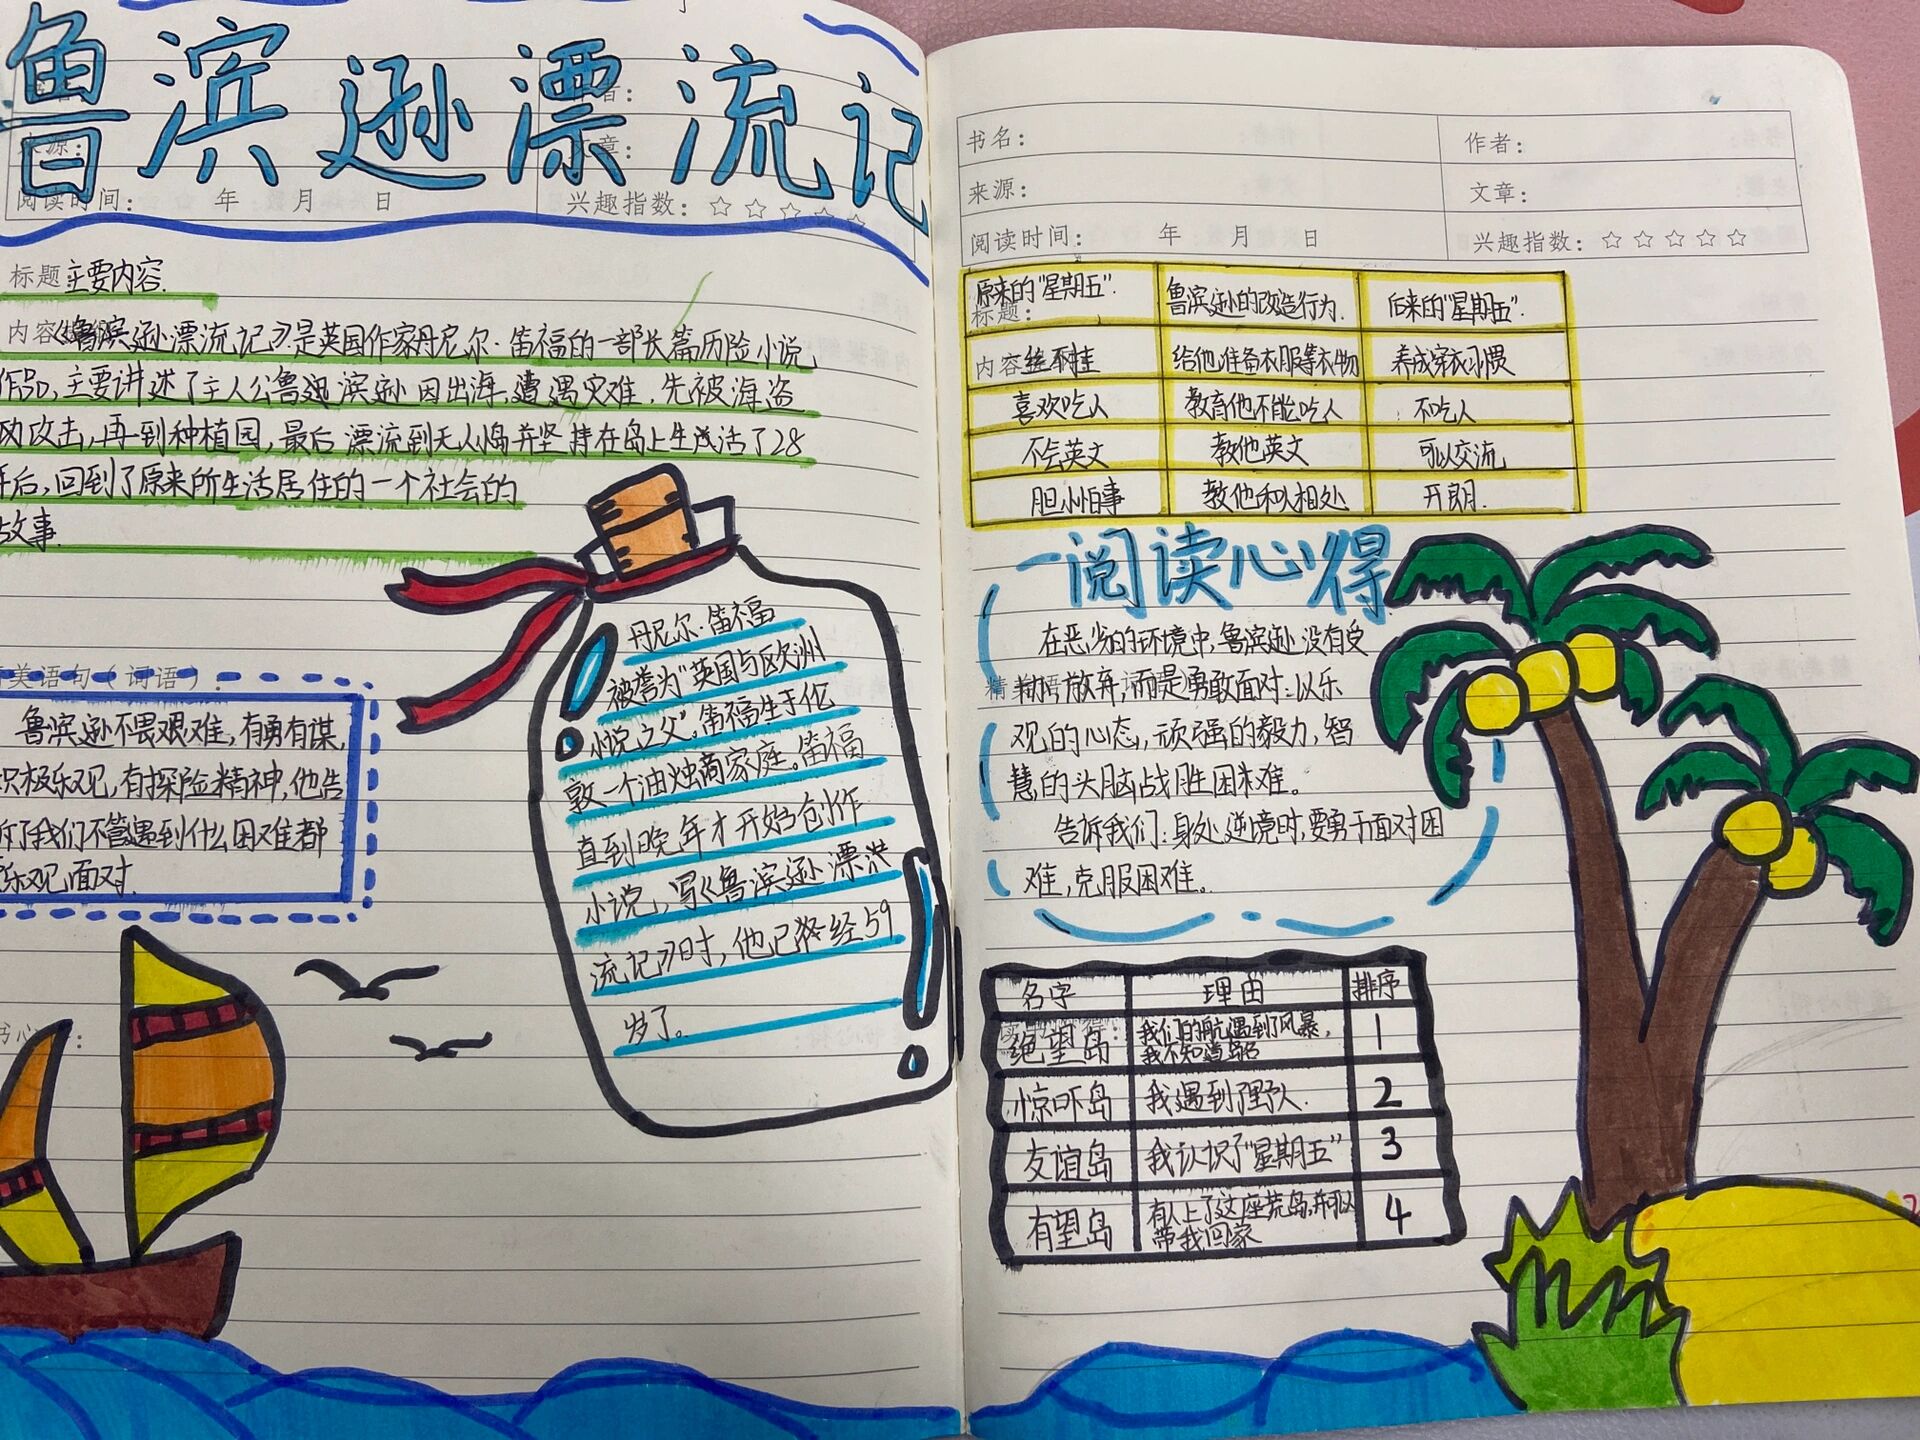 鲁滨逊漂流记
阅读时间： 年 月 日
兴趣指数：☆☆☆☆☆
标题 主要内容.
《鲁滨逊漂流记》是英国作家丹尼尔·笛福的一部长篇历险小说
作品,主要讲述了主人公鲁滨逊因出海,遭遇灾难,先被海盗
攻击,再到种植园,最后漂流到无人岛并坚持在岛上生活了28
年后,回到了原来所生活居住的一个社会的
故事.
美语句（词语）：
鲁滨逊不畏艰难,有勇有谋,
积极乐观,有探险精神,他告
诉了我们不管遇到什么困难都
乐观面对.
丹尼尔·笛福
被誉为"英国与欧洲
小说之父"。笛福生于伦
敦一个油烛商家庭。笛福
直到晚年才开始创作
小说，写《鲁滨逊漂
流记》时，他已经59
岁了。
书名：
作者：
来源：
文章：
阅读时间： 年 月 日
兴趣指数：☆☆☆☆☆
原来的"星期五". 鲁滨逊的改造行为. 后来的"星期五".
标题：
内容 丝不挂 给他准备衣服等衣物 养成穿衣习惯
喜欢吃人 教育他不能吃人 不吃人
不会英文 教他英文 可以交流
胆小怕事 教他和人相处 开朗.
阅读心得
在恶劣的环境中,鲁滨逊没有受
放弃,而是勇敢面对:以乐
观的心态,顽强的毅力,智
慧的头脑战胜困难。
告诉我们:身处逆境时,要勇于面对困
难,克服困难。
名字 理由 排序
绝望岛 我们的航遇到了风暴, 1
我不知道
惊吓岛 我遇到了野人. 2
友谊岛 我认识了"星期五" 3
有望岛 有人上了这座荒岛,并可以 4
带我回家